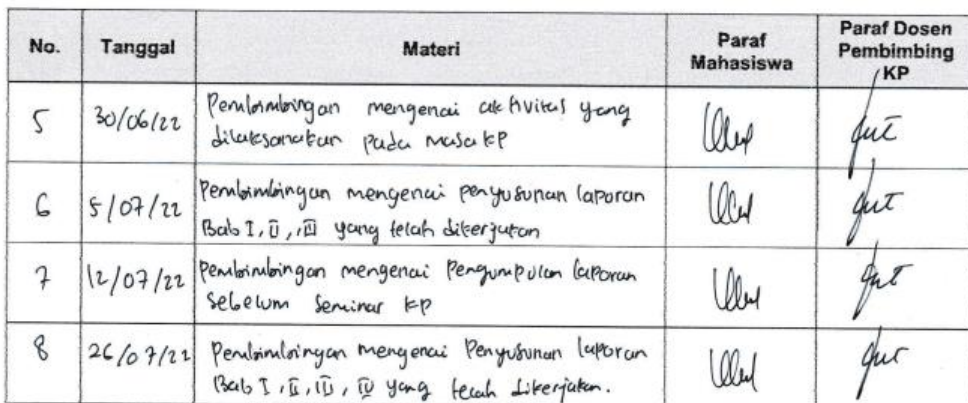 No. Tanggal Materi Paraf Mahasiswa Paraf Dosen Pembimbing KP
5 30/06/22 Pembimbingan mengenai aktivitas yang
dilaksanakan pada masa KP
6 5/07/22 Pembimbingan mengenai penyusunan laporan
Bab I, II, III yang telah dikerjakan
7 12/07/22 Pembimbingan mengenai Pengumpulan laporan
sebelum seminar KP
8 26/07/22 Pembimbingan mengenai Penyusunan laporan
Bab I, II, III, IV yang telah dikerjakan.